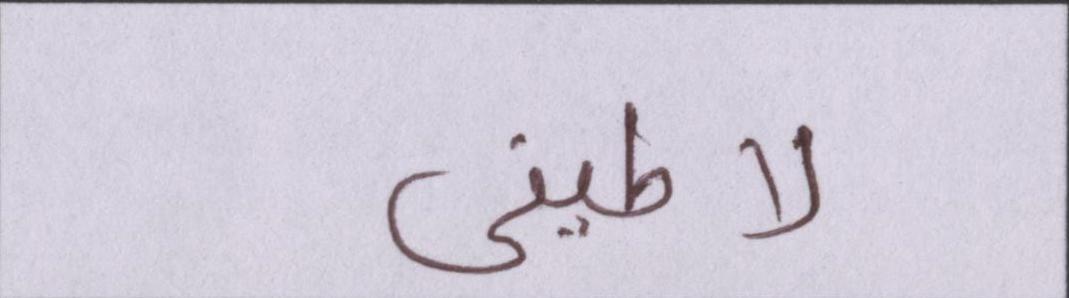 لاطينى